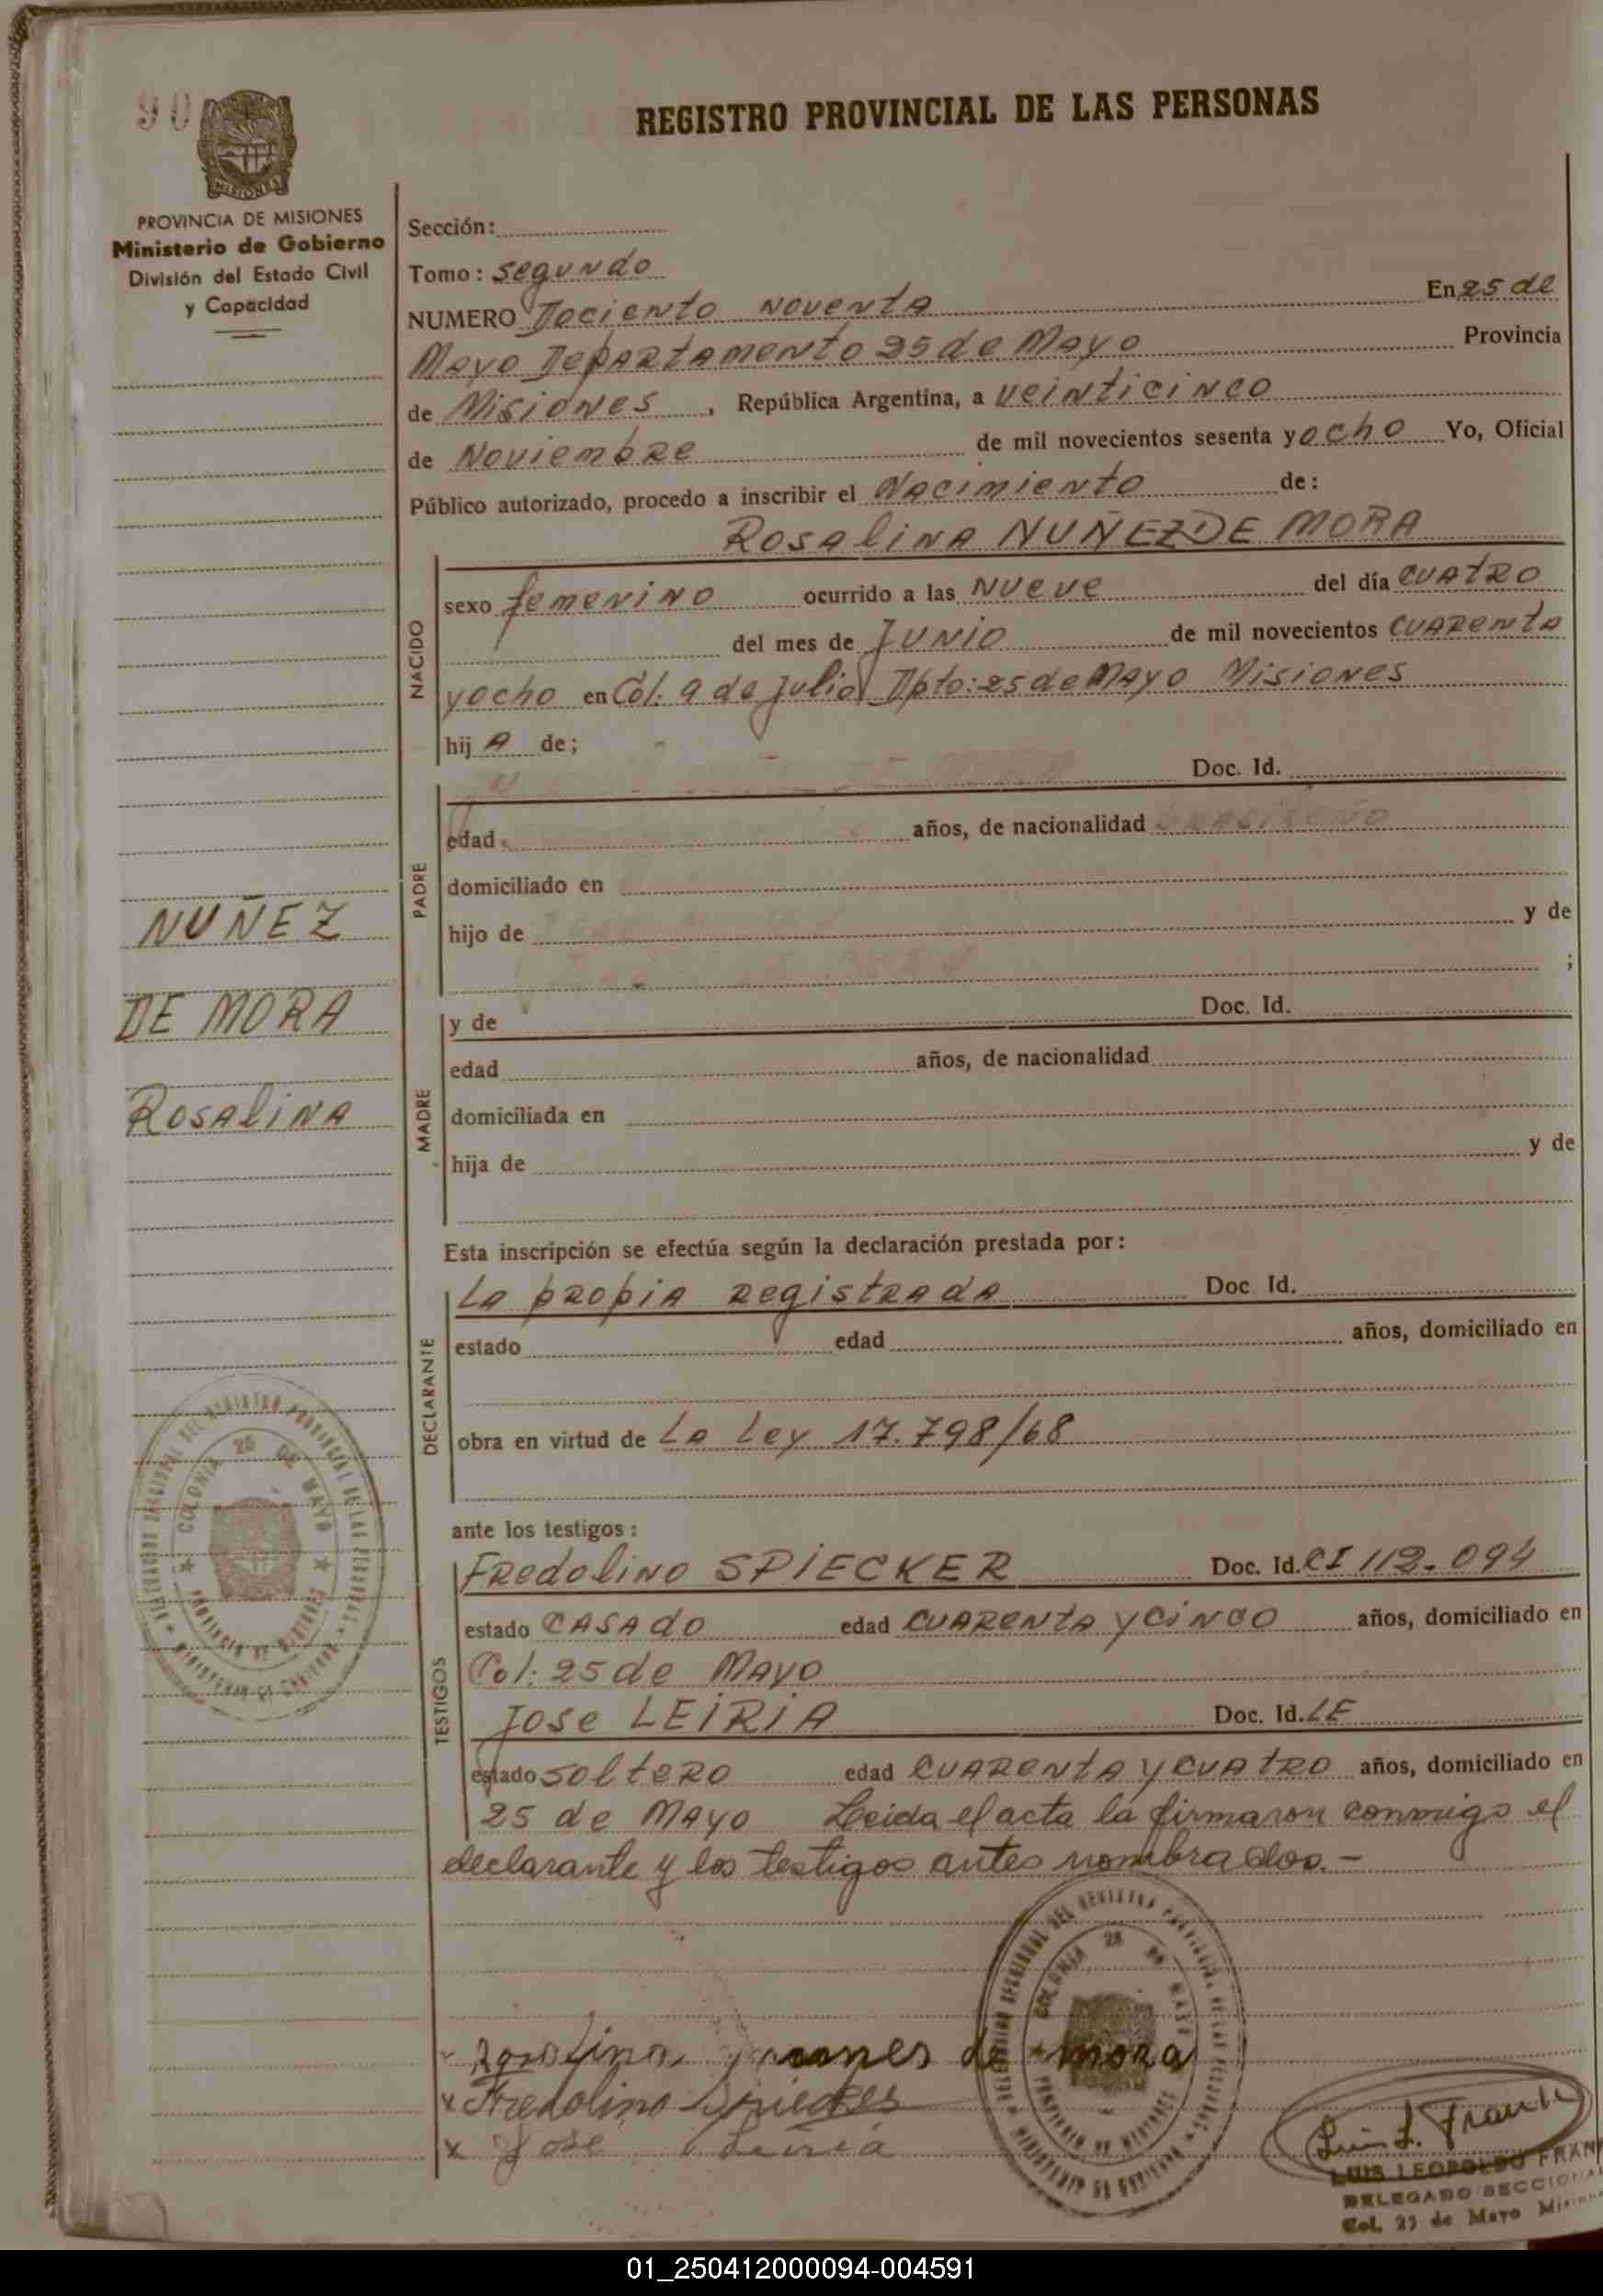 90
REGISTRO PROVINCIAL DE LAS PERSONAS
MISIONES
PROVINCIA DE MISIONES
Ministerio de Gobierno
División del Estado Civil
y Capacidad
Sección:
Tomo: segundo
NUMERO Dociento noventa En 25 de
Mayo Departamento 25 de Mayo Provincia
de Misiones, República Argentina, a veinticinco
de Noviembre de mil novecientos sesenta y ocho Yo, Oficial
Público autorizado, procedo a inscribir el Nacimiento de:
Rosalina NUÑEZ DE MORA
NACIDO
sexo femenino ocurrido a las nueve del día cuatro
del mes de Junio de mil novecientos cuarenta
yocho en Col. 9 de Julio Dpto: 25 de Mayo Misiones
hij A de;
Doc. Id.
PADRE
edad años, de nacionalidad
domiciliado en
hijo de y de
;
MADRE
y de Doc. Id.
edad años, de nacionalidad
domiciliada en
hija de y de
NUÑEZ
DE MORA
Rosalina
Esta inscripción se efectúa según la declaración prestada por:
DECLARANTE
La propia registrada Doc. Id.
estado edad años, domiciliado en
obra en virtud de La Ley 17.798/68
ante los testigos:
TESTIGOS
Fredolino SPIECKER Doc. Id. CI 112.094
estado CASAdo edad cuarenta y cinco años, domiciliado en
Col: 25 de Mayo
Jose LEIRIA Doc. Id. LE
estado soltero edad cuarenta y cuatro años, domiciliado en
25 de Mayo Leida el acta la firmaron conmigo el
declarante y los testigos antes nombrados.-
COLONIA 25 DE MAYO
PROVINCIA DE MISIONES
COLONIA 25 DE MAYO
PROVINCIA DE MISIONES
Rosalina de mora
x Fredolino
x Jose Leiria
LUIS LEOPOLDO
DELEGADO SECCIONAL
Col. 25 de Mayo
01_250412000094-004591